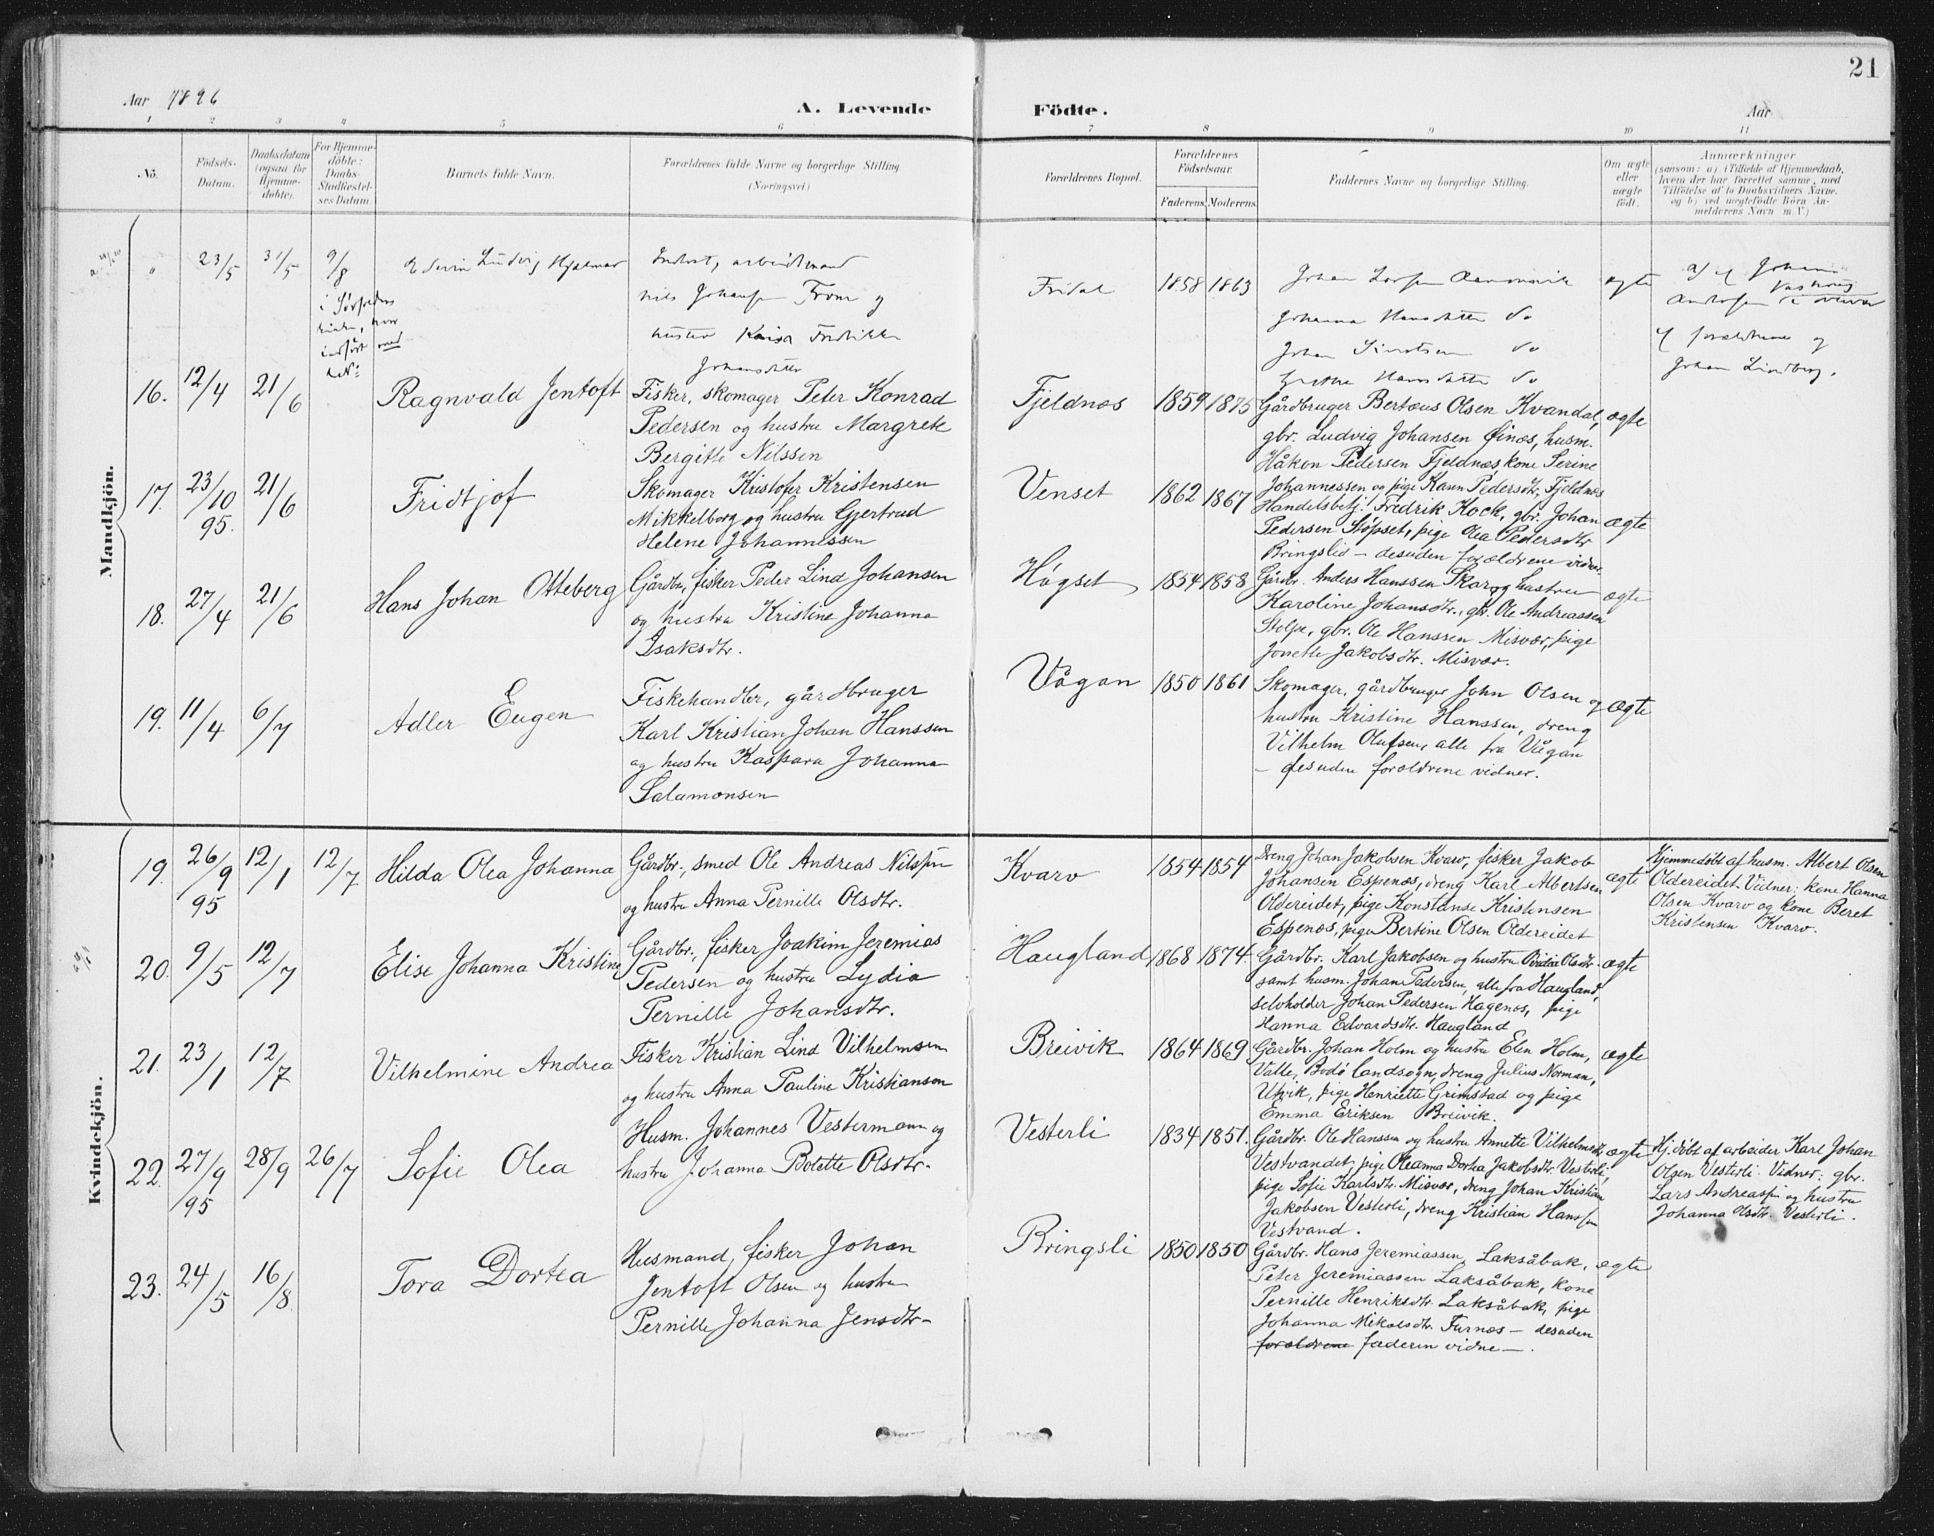 21
Aar 1896
A. Levende Födte.
Aar
1 2 3 4 5 6 7 8 9 10 11
No.
Födsels-
Datum.
Daabsdatum
(ogsaa for
Hjemme-
döbte).
For Hjemme-
döbte:
Daabs-
Stadfæstel-
ses Datum.
Barnets fulde Navn.
Forældrenes fulde Navne og borgerlige Stilling
(Næringsvei)
Forældrenes Bopæl.
Forældrenes
Födselsaar.
Faderens. Moderens.
Faddernes Navne og borgerlige Stilling.
Om ægte
eller
uægte
födt.
Anmærkninger
(saasom: a) i Tilfælde af Hjemmedaab,
hvem der har forrettet samme, med
Tilföielse af to Daabsvidners Navne.
og b) ved uægtefödte Börn An-
melderens Navn m. V.)
Mandkjön.
" 23/5 31/5 9/8
Ludvig Hjalmar
Indert, arbeidsmand
Nils Johansen From og
hustru Kaisa Fredrikke
Johansdatter
1858 1863
Johan Larsen
Johanna Hansdatter do
Johan Simonsen do
Hansdatter do
ægte
af forældrene og
Johan Lindberg.
16. 12/4 21/6
Ragnvald Jentoft
Fisker, skomager Peter Konrad
Pedersen og hustru Margrete
Bergitte Nilssen
Fjeldnæs
1859 1875
Gårdbruger Bertæus Olsen Kvandal,
gbr. Ludvig Johansen Finæs, husm.
Håkon Pedersen Fjeldnæs, kone Serine
Johannessen og pige Karen Pedersdtr, Fjeldnæs
ægte
17. 23/10 95. 21/6
Fridtjof
Skomager Kristofer Kristensen
Mikkelborg og hustru Gjertrud
Helene Johannessen
Venset
1862 1867
Handelsbetj. Fredrik Kock, gbr. Johan
Pedersen Støpset, pige Olea Pedersdtr
Bringsli – desuden forældrene vidner.
ægte
18. 27/4 21/6
Hans Johan Otteberg
Gårdbr., fisker Peder Lind Johansen
og hustru Kristine Johanna
Isaksdtr.
Høgset
1854 1858
Gårdbr. Anders Hanssen Skar og hustru
Karoline Johansdtr., gbr. Ole Andreassen
Stolpe, gbr. Ole Hanssen Misvær, pige
Jonette Jakobsdtr. Misvær.
ægte
19. 11/4 6/7
Adler Eugen
Fiskehandler, gårdbruger
Karl Kristian Johan Hanssen
og hustru Kaspara Johanna
Salamonsen
Vågan
1850 1861
Skomager, gårdbruger John Olsen og
hustru Kristine Hanssen, dreng
Vilhelm Olufsen, alle fra Vågan
– desuden forældrene vidner.
ægte
Kvindekjön.
19. 26/9 95 12/1 12/7
Hilda Olea Johanna
Gårdbr., smed Ole Andreas Nilssen
og hustru Anna Pernille Olsdtr.
Kvarv
1854 1854
Dreng Johan Jakobsen Kvarv, fisker Jakob
Johansen Espenæs, dreng Karl Albertsen
Oldereidet, pige Konstanse Kristensen
Espenæs, pige Bertine Olsen Oldereidet
ægte
Hjemmedøbt af husm. Albert Olsen
Oldereidet. Vidner: kone Hanna
Olsen Kvarv og kone Beret
Kristensen Kvarv.
20. 9/5 12/7
Elise Johanna Kristine
Gårdbr., fisker Joakim Jeremias
Pedersen og hustru Lydia
Pernille Johansdtr.
Haugland
1868 1874
Gårdbr. Karl Jakobsen og hustru Olsdtr.
samt husm. Johan Pedersen, alle fra Haugland,
selvholder Johan Pedersen Hagenæs, pige
Hanna Edvardsdtr. Haugland
ægte
21. 23/1 12/7
Vilhelmine Andrea
Fisker Kristian Lind Vilhelmsen
og hustru Anna Pauline Kristianson
Breivik
1864 1869
Gårdbr. Johan Holm og hustru Elen Holm,
Valle, Bodø landsogn, dreng Julius Norman,
Utvik, pige Henriette Grimstad og pige
Emma Eriksen Breivik.
ægte
22. 27/9 95 28/9 26/7
Sofie Olea
Husm. Johannes Vestermann og
hustru Johanna Botette Olsdtr.
Vesterli
1834 1851.
Gårdbr. Ole Hanssen og hustru Annette Vilhelmsdtr
Vestvandet, pige Oleanna Dortea Jakobsdtr. Vesterli,
pige Sofie Karlsdtr. Misvær, dreng Johan Kristian
Jakobsen Vesterli, dreng Kristian Hanssen
Vestvand.
ægte
Hj.døbt af arbeider Karl Johan
Olsen Vesterli. Vidner: gbr.
Lars Andreassen og hustru
Johanna Olsdtr. Vesterli.
23. 24/5 16/8
Tora Dortea
Husmand, fisker Johan
Jentoft Olsen og hustru
Pernille Johanna Jensdtr.
Bringsli
1850 1850
Gårdbr. Hans Jeremiassen, Laksåbak,
Peter Jeremiassen Laksåbak, kone
Pernille Henriksdtr. Laksåbak, pige
Johanna Mikalsdtr. Furnes – desuden
forældrene faderen vidne –.
ægte